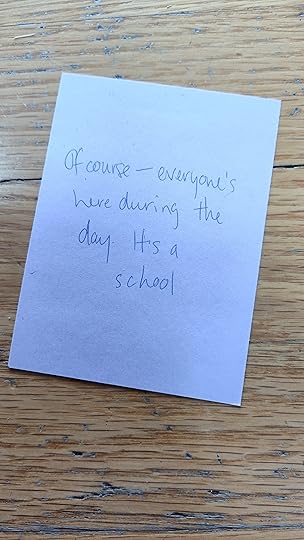 Of course – everyone's
here during the
day. It's a
school